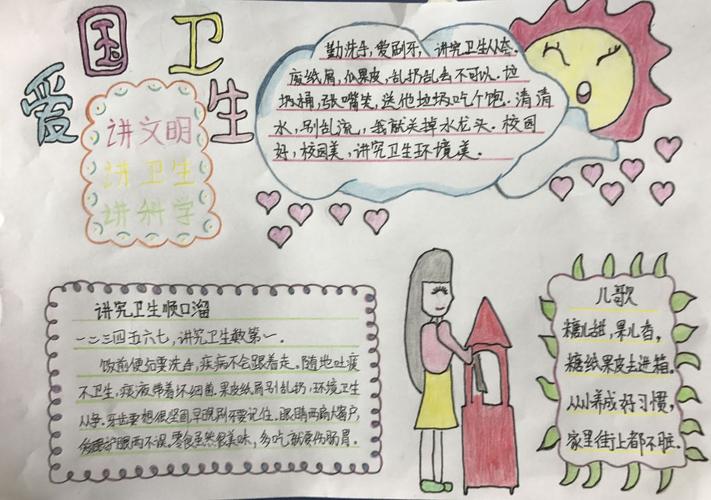 爱国卫生
讲文明
讲卫生
讲科学
勤洗手,爱刷牙,讲究卫生人人夸.
废纸屑,瓜果皮,乱扔乱丢不可以.垃
圾桶,张嘴笑,送他垃圾吃个饱.清清
水,别乱流,我就关掉水龙头.校园
好,校园美,讲究卫生环境美.
讲究卫生顺口溜
一二三四五六七,讲究卫生数第一.
饭前便后要洗手,疾病不会跟着走.随地吐痰
不卫生,痰液带着坏细菌.果皮纸屑别乱扔,环境卫生
从我.牙齿要想很坚固,早晚刷牙要记住.眼睛两扇大窗户,
护眼两不误.零食虽然很美味,多吃就要伤肠胃.
儿歌
糖儿甜,果儿香,
糖纸果皮去进箱.
从小养成好习惯,
家里街上都不脏.